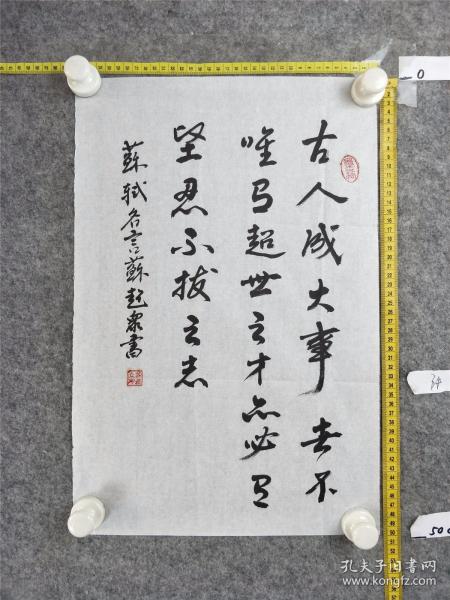 古人成大事者不
唯有超世之才亦必有
坚忍不拔之志
蘇軾名言蘇書
0
34
孔夫子旧书网
www.kongfz.com